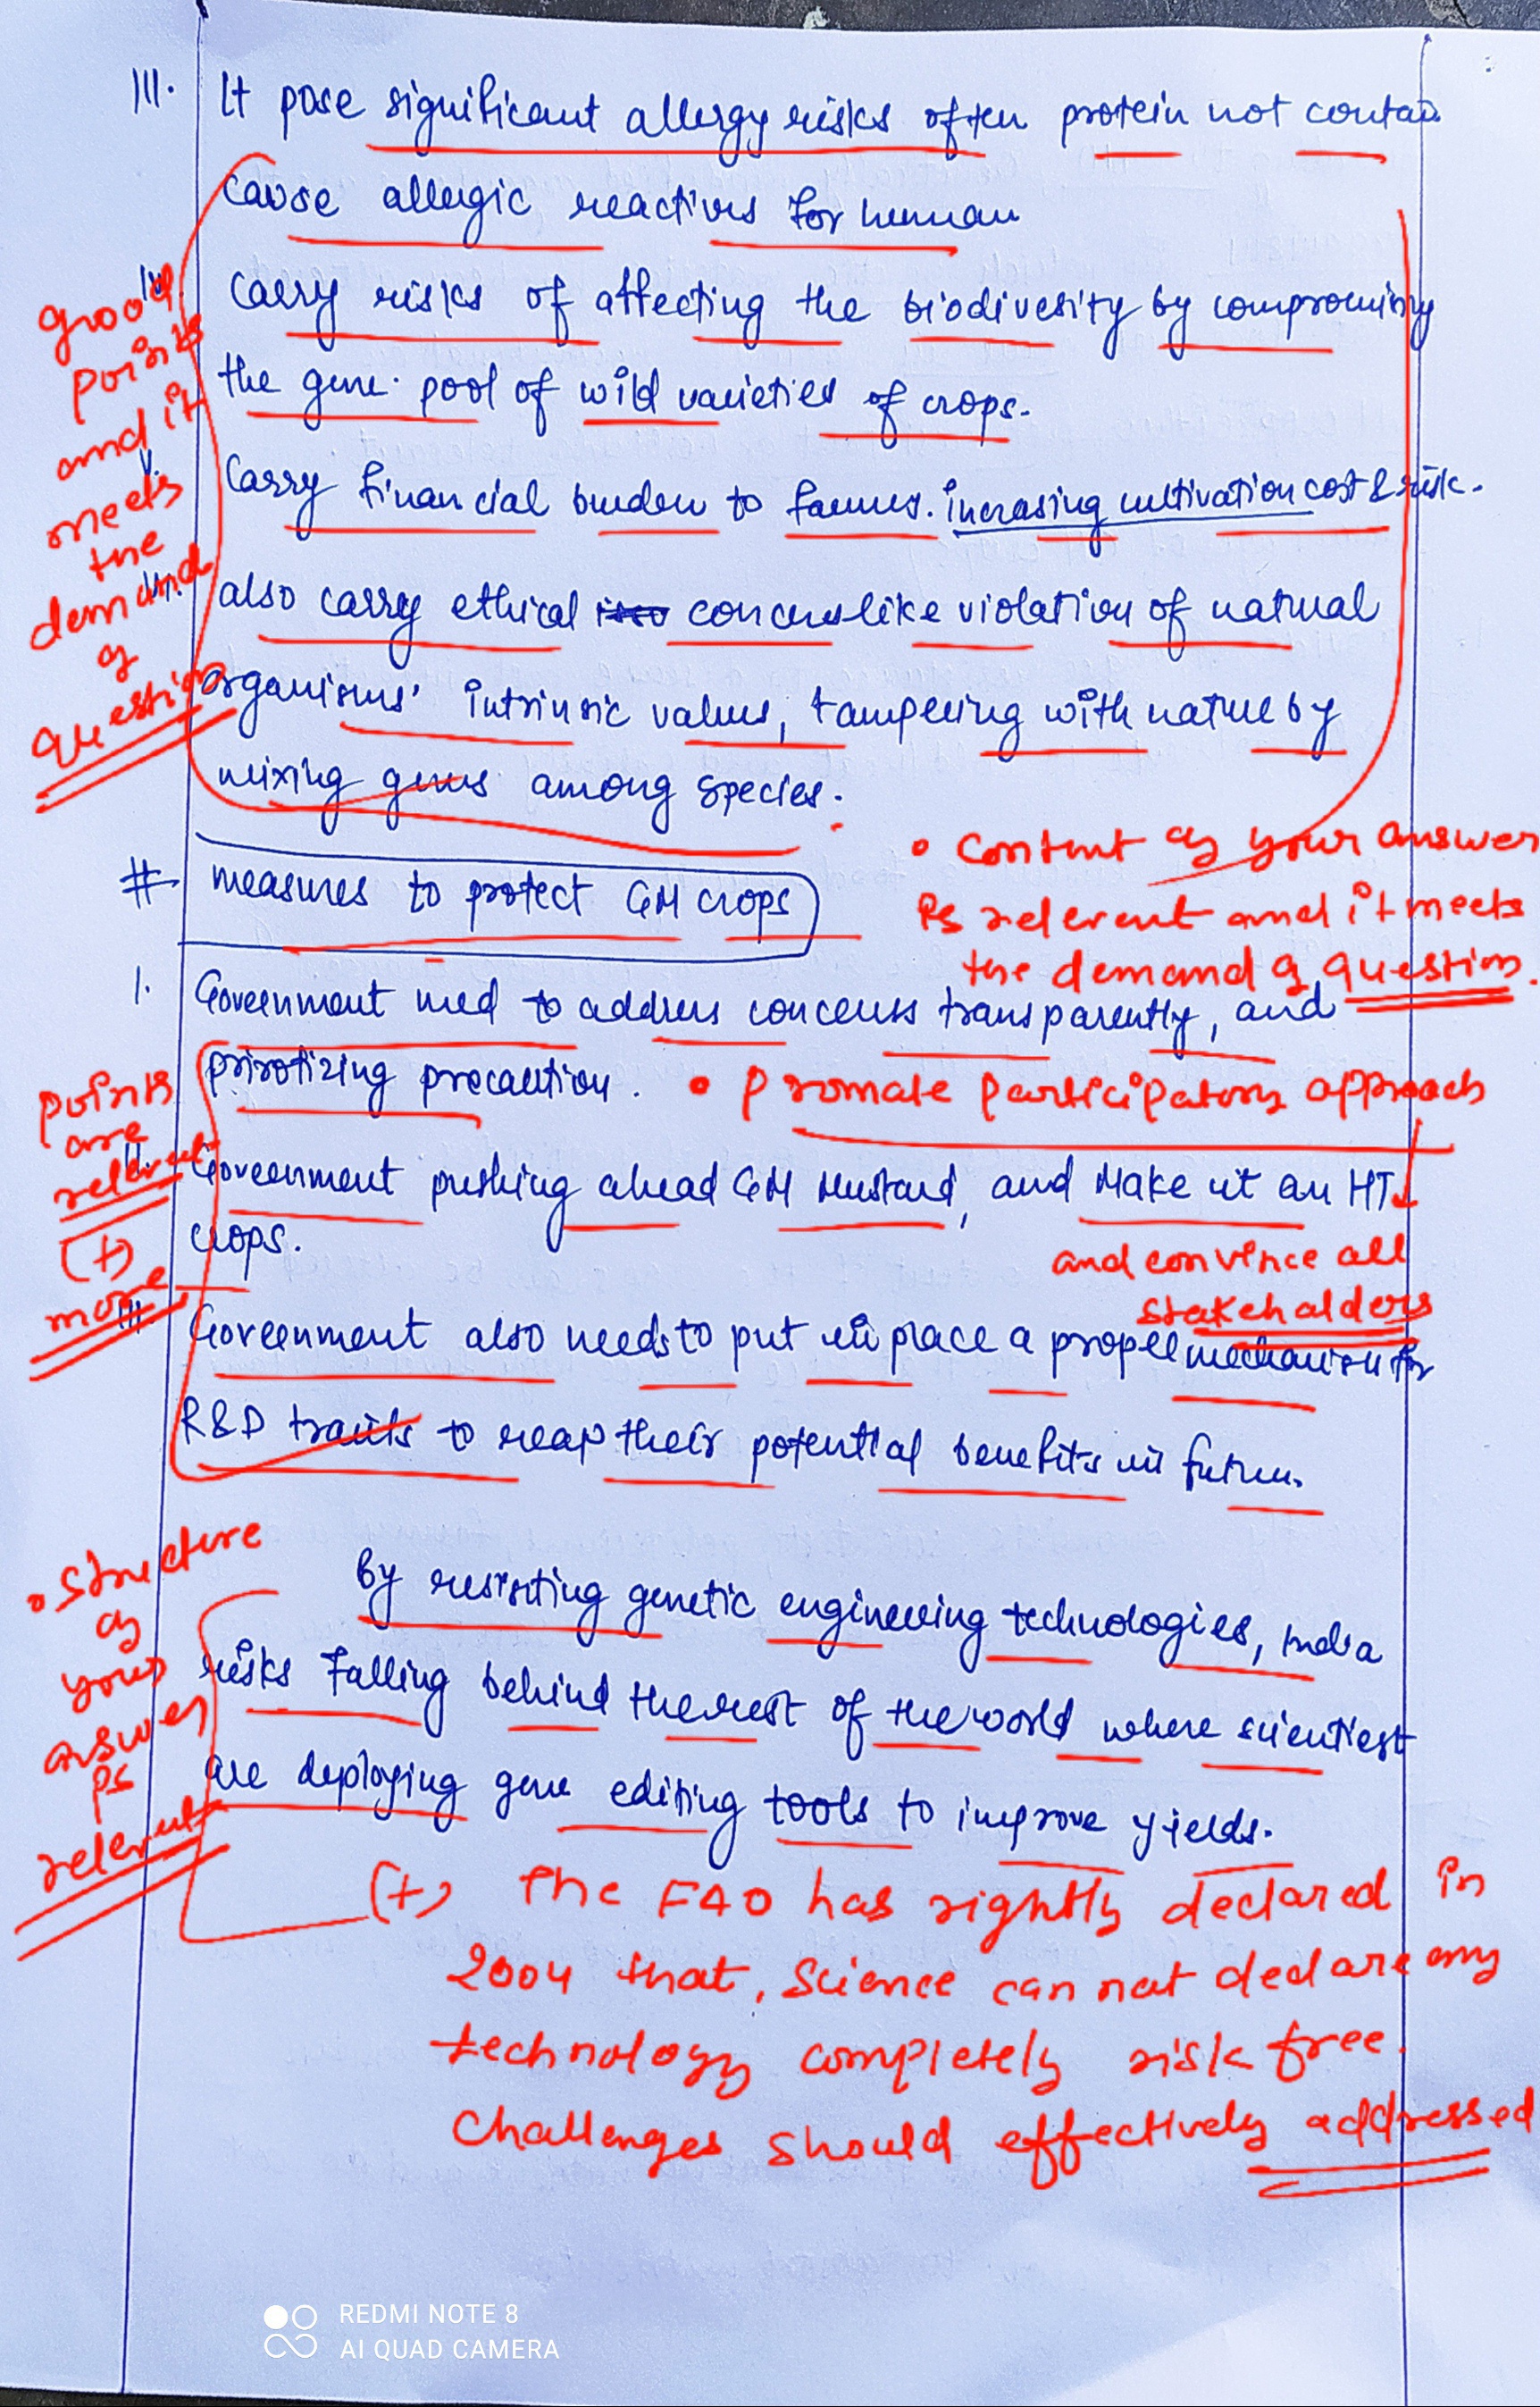 III. It pose significant allergy risks often protein not contain
cause allergic reactions for human
good points and it meets the demand of question
iv. Carry risks of affecting the biodivesity by compromising
the gene pool of wild varieties of crops.
v. Carry financial burden to farmers. increasing cultivation cost & risk.
vi. also carry ethical concerns like violation of natural
organisms' intrinsic values, tampering with nature by
mixing genes among species.
• Content of your answer
is relevent and it meets
the demand of question.
# measures to protect GM crops
I. Government need to address concerns transparently, and
prirotizing precaution.
• Promate participatory approach
and convince all
stakehalders
points
are
relevent
(+)
more
II. Government pushing ahead GM Mustard, and Make it an HT
crops.
III. Government also needs to put in place a proper mechanism for
R&D traits to reap their potential benefits in future.
• Structure
of
your
answer
is
relevent
By resisting genetic engineering technologies, India
risks falling behind the rest of the world where scientiest
are deploying gene editing tools to improve yields.
(+) The FAO has rightly declared in
2004 that, Science can not declare any
technology completely risk free.
Challenges should effectively addressed
REDMI NOTE 8
AI QUAD CAMERA